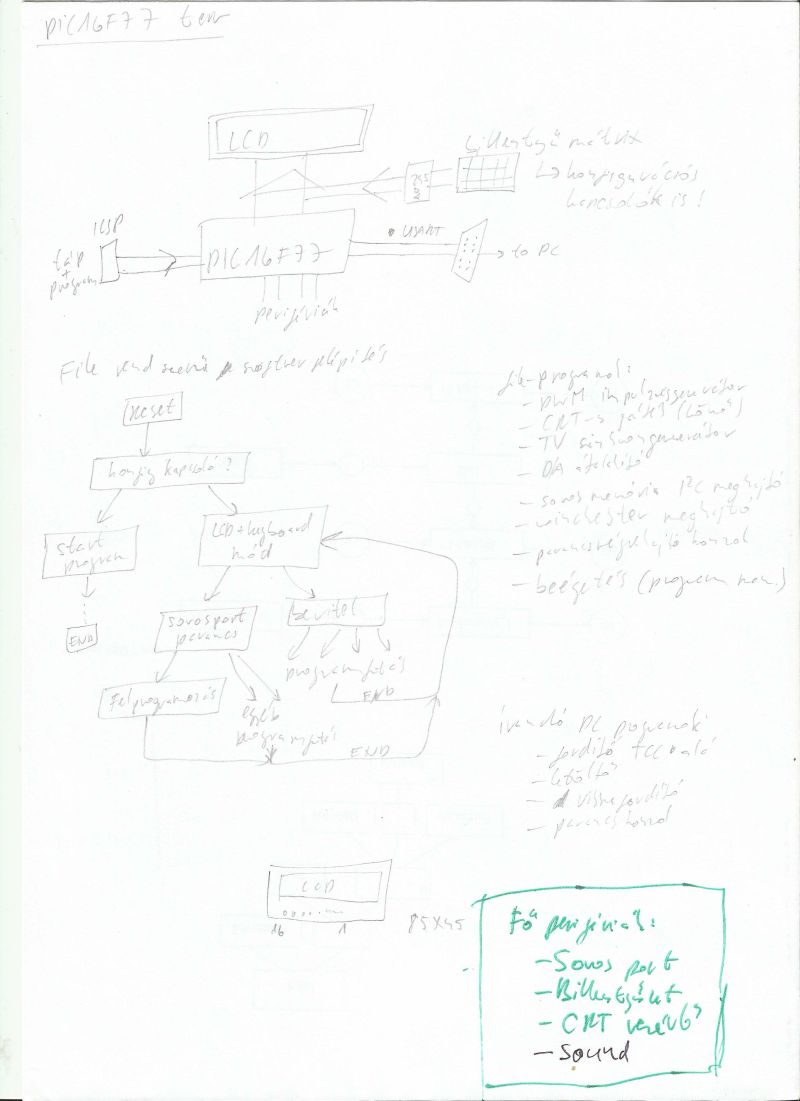 PIC16F77 terv
LCD
billentyű mátrix
↳ konfigurációs
kapcsolók is!
ICSP
táp
+
program
PIC16F77
• USART
→ to PC
perifériák
File rendszerű szoftver felépítés
reset
konfig kapcsoló?
start
program
END
LCD+keyboard
mód
sorosport
parancs
bevitel
programfutás
END
Felprogramozás
egyéb
programfutás
END
file-programok:
- PWM impulzusgenerátor
- CRT-s játék (lövő)
- TV szinkrongenerátor
- DA átalakító
- soros memória I²C meghajtó
- winchester meghajtó
- parancsvégrehajtó konzol
- beégetés (program mem.)
írandó PC programok
- fordító
- letöltő
- visszafordító
- parancskonzol
LCD
16 1
85x45
Fő perifériák:
- Soros port
- Billentyűzet
- CRT vezérlő
- Sound